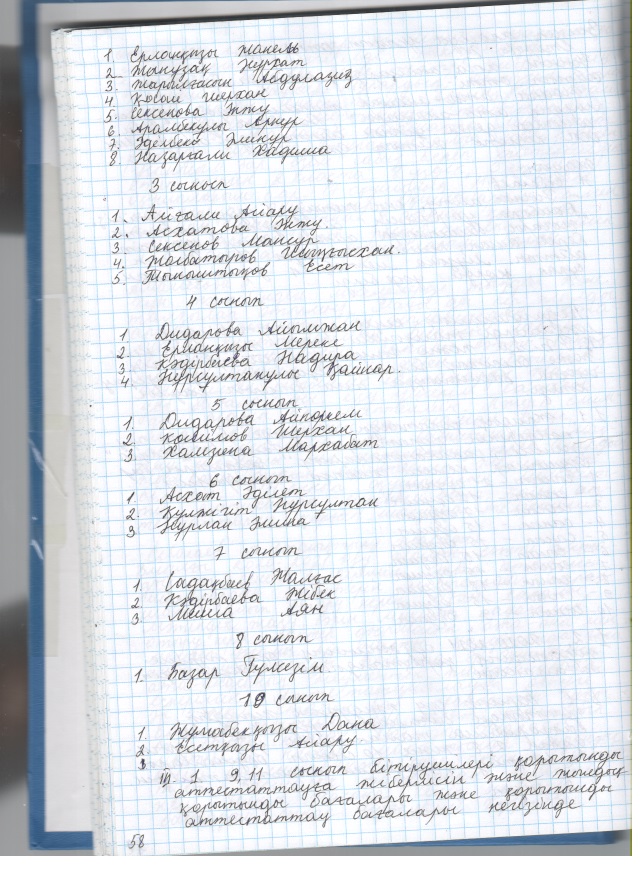 1. Ерланқызы Жанель
2 Тынузақ Нұрхат
3. Жаралғасын Абдулазиз
4. Қосай Шерхан
5. Сексенова Інжу
6. Арамбекұлы Арнұр
7. Әделбек Әлинұр
8. Назарғали Хадиша
3 сынып
1. Айғали Айару
2. Асхатова Інжу.
3. Сексенов Мансур
4. Жолбатыров Шыңғысхан.
5. Тыныштықов Есет
4 сынып
1 Дидарова Айымжан
2. Ерланқызы Мереке
3 Кәдірбаева Надира
4. Нұрсұлтанұлы Қайнар.
5 сынып
1. Дидарова Айкөркем
2. Шерхан
3. Хамзина Мархабат
6 сынып
1 Асхат Әділет
2. Құлжігіт Нұрсұлтан
3 Нұрлан Әлима
7 сынып
1. Садақбаев Жалғас
2. Кәдірбаева Жібек
3. Аян
8 сынып
1. Базар Гүлсезім
10 сынып
1. Жұмабекқызы Дана
2 Есетқазы Айару
3
III. 1 9, 11 сынып бітірушілері қорытынды
аттестаттауға жіберілсін және жылдық
қорытынды бағалары және қорытынды
аттестаттау бағалары негізінде
58